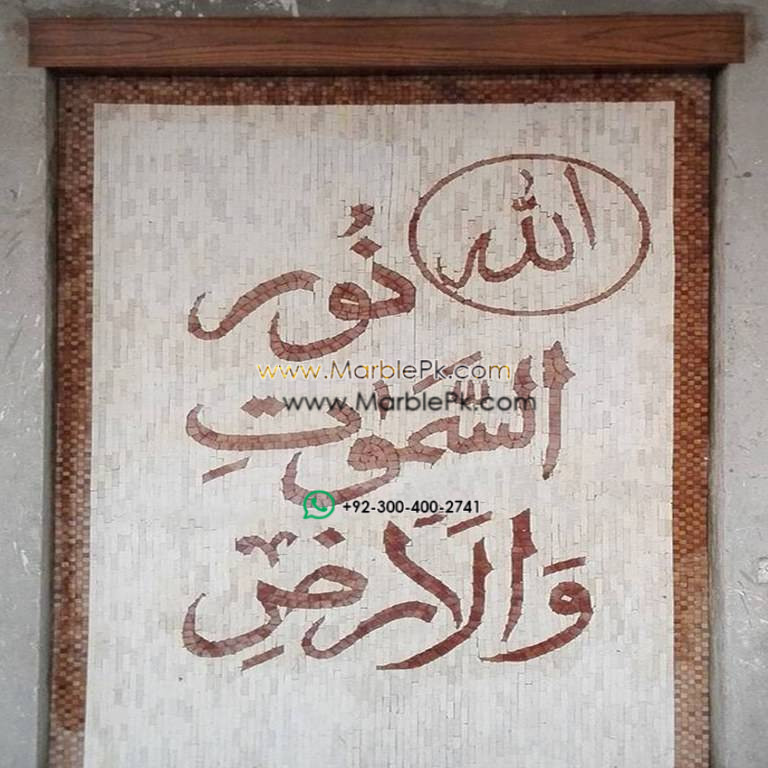 الله
نُور
السَّمَوٰتِ
وَالَارَضِ
www.MarblePk.com
www.MarblePk.com
+92-300-400-2741